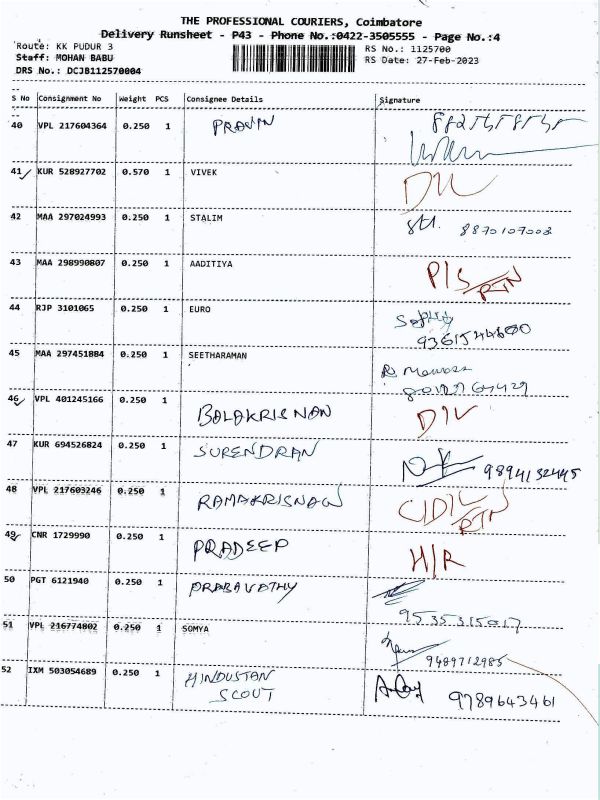 THE PROFESSIONAL COURIERS, Coimbatore
Delivery Runsheet - P43 - Phone No.:0422-3505555 - Page No.:4
Route: KK PUDUR 3 RS No.: 1125700
Staff: MOHAN BABU RS Date: 27-Feb-2023
DRS No.: DCJB112570004
S No Consignment No Weight PCS Consignee Details Signature
40 VPL 217604364 0.250 1 PRAVIN
41 KUR 528927702 0.570 1 VIVEK
42 MAA 297024993 0.250 1 STALIM 8870107008
43 MAA 298990807 0.250 1 AADITIYA P/S RTN
44 RJP 3101065 0.250 1 EURO
45 MAA 297451884 0.250 1 SEETHARAMAN
46 VPL 401245166 0.250 1 BALAKRISNAN D/L
47 KUR 694526824 0.250 1 SURENDRAN 9894132445
48 VPL 217603246 0.250 1 RAMAKRISNAN RTN
49 CNR 1729990 0.250 1 PRADEEP H/R
50 PGT 6121940 0.250 1 PRABAVATHY 9535315017
51 VPL 216774802 0.250 1 SOMYA 9489712985
52 IXM 503054689 0.250 1 HINDUSTAN
SCOUT 9789643461